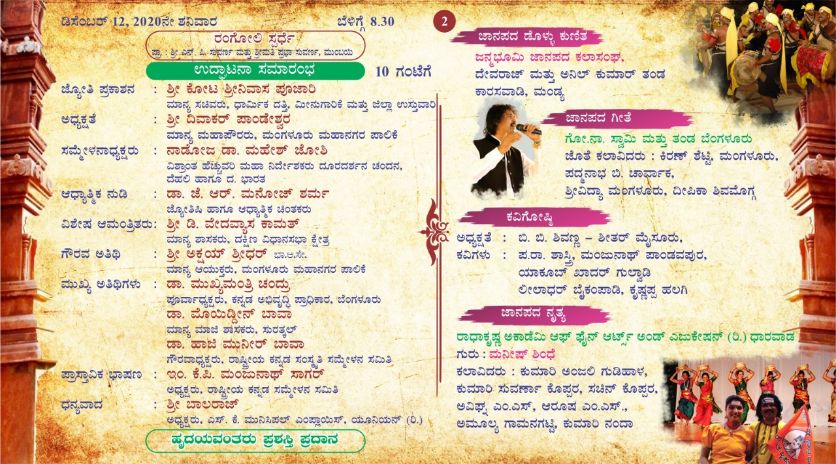 ಡಿಸೆಂಬರ್ 12, 2020ನೇ ಶನಿವಾರ ಬೆಳಿಗ್ಗೆ 8.30
ರಂಗೋಲಿ ಸ್ಪರ್ಧೆ
ಪ್ರಾ : ಶ್ರೀ ಎನ್. ಪಿ. ಸುವರ್ಣ ಮತ್ತು ಶ್ರೀಮತಿ ಪ್ರಭಾ ಸುವರ್ಣ, ಮುಂಬಯಿ
ಉದ್ಘಾಟನಾ ಸಮಾರಂಭ 10 ಗಂಟೆಗೆ
ಜ್ಯೋತಿ ಪ್ರಕಾಶನ : ಶ್ರೀ ಕೋಟ ಶ್ರೀನಿವಾಸ ಪೂಜಾರಿ
ಮಾನ್ಯ ಸಚಿವರು, ಧಾರ್ಮಿಕ ದತ್ತಿ, ಮೀನುಗಾರಿಕೆ ಮತ್ತು ಜಿಲ್ಲಾ ಉಸ್ತುವಾರಿ
ಅಧ್ಯಕ್ಷತೆ : ಶ್ರೀ ದಿವಾಕರ್ ಪಾಂಡೇಶ್ವರ
ಮಾನ್ಯ ಮಹಾಪೌರರು, ಮಂಗಳೂರು ಮಹಾನಗರ ಪಾಲಿಕೆ
ಸಮ್ಮೇಳನಾಧ್ಯಕ್ಷರು : ನಾಡೋಜ ಡಾ. ಮಹೇಶ್ ಜೋಶಿ
ವಿಶ್ರಾಂತ ಹೆಚ್ಚುವರಿ ಮಹಾ ನಿರ್ದೇಶಕರು ದೂರದರ್ಶನ ಚಂದನ,
ದೆಹಲಿ ಹಾಗೂ ದ. ಭಾರತ
ಆಧ್ಯಾತ್ಮಿಕ ನುಡಿ : ಡಾ. ಜೆ. ಆರ್. ಮನೋಜ್ ಶರ್ಮ
ಜ್ಯೋತಿಷಿ ಹಾಗೂ ಆಧ್ಯಾತ್ಮಿಕ ಚಿಂತಕರು
ವಿಶೇಷ ಆಮಂತ್ರಿತರು : ಶ್ರೀ ಡಿ. ವೇದವ್ಯಾಸ ಕಾಮತ್
ಮಾನ್ಯ ಶಾಸಕರು, ದಕ್ಷಿಣ ವಿಧಾನಸಭಾ ಕ್ಷೇತ್ರ
ಗೌರವ ಅತಿಥಿ : ಶ್ರೀ ಅಕ್ಷಯ್ ಶ್ರೀಧರ್ ಭಾ.ಆ.ಸೇ.
ಮಾನ್ಯ ಆಯುಕ್ತರು, ಮಂಗಳೂರು ಮಹಾನಗರ ಪಾಲಿಕೆ
ಮುಖ್ಯ ಅತಿಥಿಗಳು : ಡಾ. ಮುಖ್ಯಮಂತ್ರಿ ಚಂದ್ರು
ಪೂರ್ವಾಧ್ಯಕ್ಷರು, ಕನ್ನಡ ಅಭಿವೃದ್ಧಿ ಪ್ರಾಧಿಕಾರ, ಬೆಂಗಳೂರು
ಡಾ. ಮೊಯಿದ್ದೀನ್ ಬಾವಾ
ಮಾನ್ಯ ಮಾಜಿ ಶಾಸಕರು, ಸುರತ್ಕಲ್
ಡಾ. ಹಾಜಿ ಮುನೀರ್ ಬಾವಾ
ಗೌರವಾಧ್ಯಕ್ಷರು, ರಾಷ್ಟ್ರೀಯ ಕನ್ನಡ ಸಂಸ್ಕೃತಿ ಸಮ್ಮೇಳನ ಸಮಿತಿ
ಪ್ರಾಸ್ತಾವಿಕ ಭಾಷಣ : ಇಂ. ಕೆ.ಪಿ. ಮಂಜುನಾಥ್ ಸಾಗರ್
ಅಧ್ಯಕ್ಷರು, ರಾಷ್ಟ್ರೀಯ ಕನ್ನಡ ಸಮ್ಮೇಳನ ಸಮಿತಿ
ಧನ್ಯವಾದ : ಶ್ರೀ ಬಾಲರಾಜ್
ಅಧ್ಯಕ್ಷರು, ಎಸ್. ಕೆ. ಮುನಿಸಿಪಲ್ ಎಂಪ್ಲಾಯಿಸ್, ಯೂನಿಯನ್ (ರಿ.)
ಹೃದಯವಂತರು ಪ್ರಶಸ್ತಿ ಪ್ರದಾನ
2
ಜಾನಪದ ಡೊಳ್ಳು ಕುಣಿತ
ಜನ್ಮಭೂಮಿ ಜಾನಪದ ಕಲಾಸಂಘ,
ದೇವರಾಜ್ ಮತ್ತು ಅನಿಲ್ ಕುಮಾರ್ ತಂಡ
ಕಾರಸವಾಡಿ, ಮಂಡ್ಯ
ಜಾನಪದ ಗೀತೆ
ಗೋ.ನಾ. ಸ್ವಾಮಿ ಮತ್ತು ತಂಡ ಬೆಂಗಳೂರು
ಜೊತೆ ಕಲಾವಿದರು : ಕಿರಣ್ ಶೆಟ್ಟಿ, ಮಂಗಳೂರು,
ಪದ್ಮನಾಭ ಬಿ. ಚಾರ್ವಾಕ,
ಶ್ರೀವಿದ್ಯಾ ಮಂಗಳೂರು, ದೀಪಿಕಾ ಶಿವಮೊಗ್ಗ
ಕವಿಗೋಷ್ಠಿ
ಅಧ್ಯಕ್ಷತೆ : ಬಿ. ಬಿ. ಶಿವಣ್ಣ – ಶೀತರ್ ಮೈಸೂರು,
ಕವಿಗಳು : ಪ.ರಾ. ಶಾಸ್ತ್ರಿ, ಮಂಜುನಾಥ್ ಪಾಂಡವಪುರ,
ಯಾಕೂಬ್ ಖಾದರ್ ಗುಲ್ವಾಡಿ
ಲೀಲಾಧರ್ ಬೈಕಂಪಾಡಿ, ಕೃಷ್ಣಪ್ಪ ಹಲಗಿ
ಜಾನಪದ ನೃತ್ಯ
ರಾಧಾಕೃಷ್ಣ ಅಕಾಡೆಮಿ ಆಫ್ ಫೈನ್ ಆರ್ಟ್ಸ್ ಅಂಡ್ ಎಜುಕೇಷನ್ (ರಿ.) ಧಾರವಾಡ
ಗುರು : ಮನೀಷ್ ಶಿಂಧೆ
ಕಲಾವಿದರು : ಕುಮಾರಿ ಅಂಜಲಿ ಗುಡಿಹಾಳ,
ಕುಮಾರಿ ಸುವರ್ಣಾ ಕೊಪ್ಪರ, ಸಚಿನ್ ಕೊಪ್ಪರ,
ಅವಿಘ್ನ ಎಂ.ಎಸ್, ಆರುಷ ಎಂ.ಎಸ್.,
ಅಮೂಲ್ಯ ಗಾಮನಗಟ್ಟಿ, ಕುಮಾರಿ ನಂದಾ